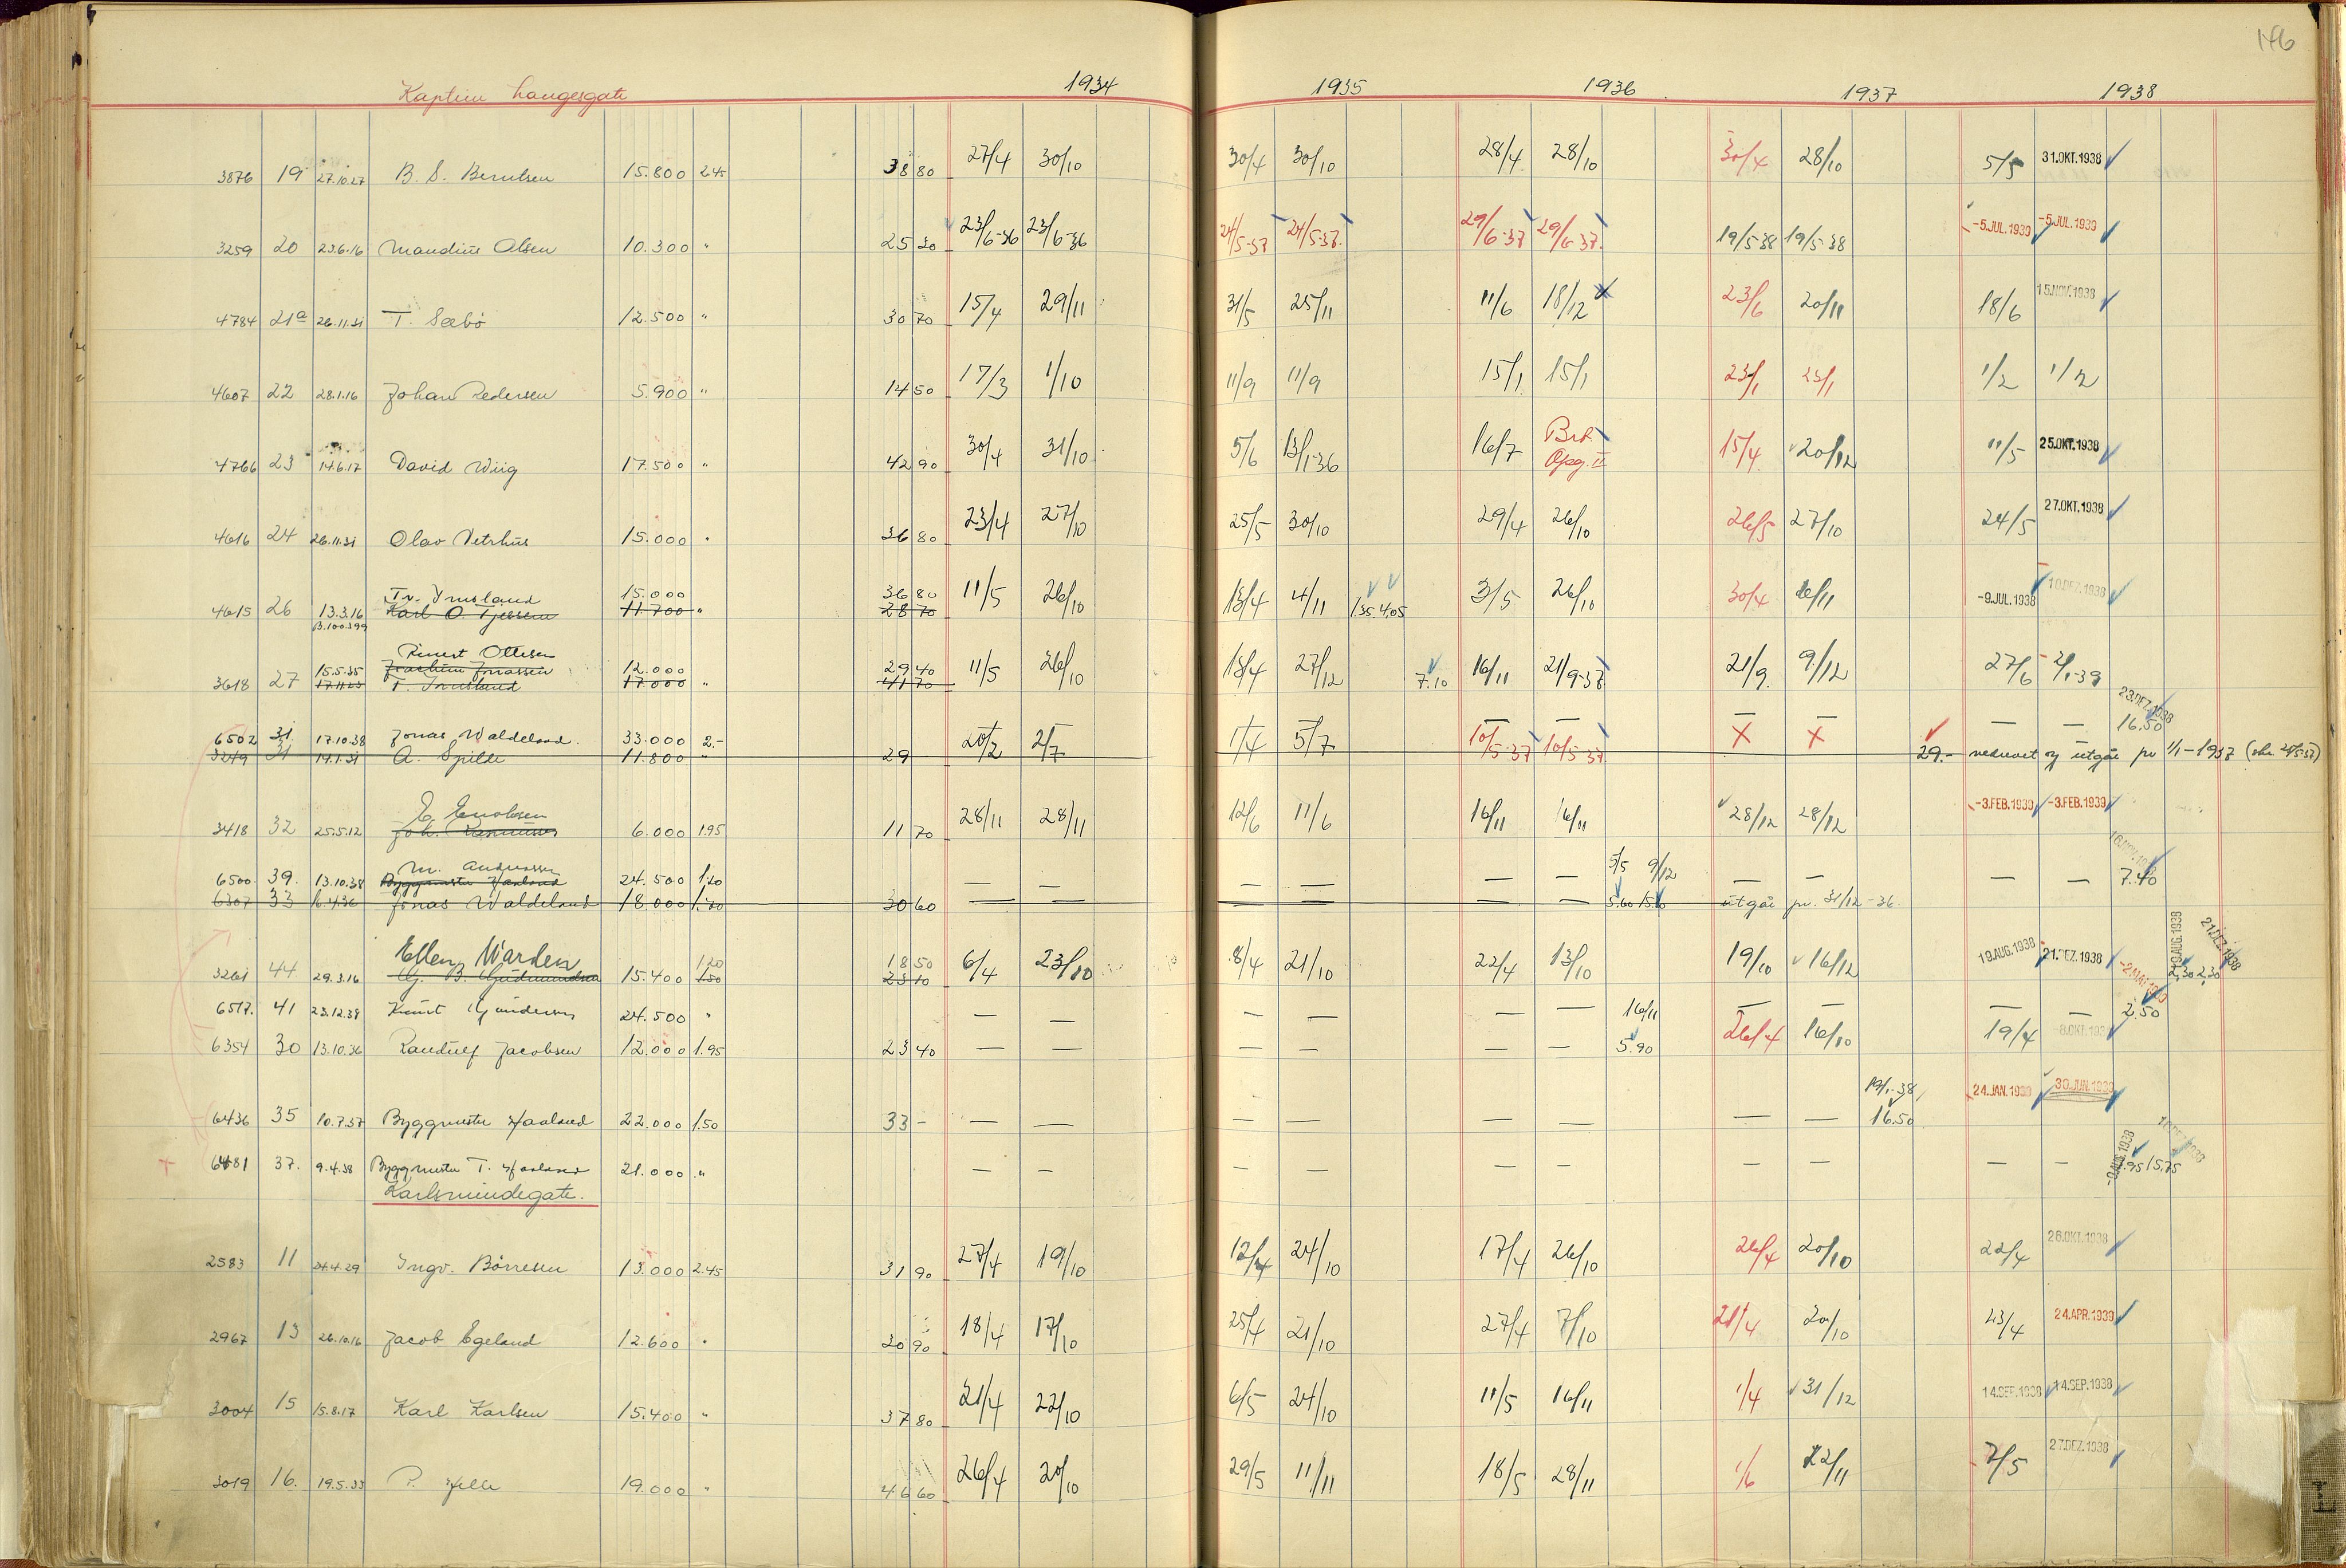 146
Kaptein Langesgate 1934 1935 1936 1937 1938
3876 19 27.10.27 B. S. Berntsen 15.800 2.45 38 80 27/4 30/10 30/4 30/10 28/4 28/10 30/4 28/10 5/5 31.OKT.1938
3259 20 23.6.16 Maudius Olsen 10.300 " 25 30 23/6-36 23/6-36 24/5-37 24/5-37. 29/6-37 29/6-37. 19/5-38 19/5-38 -5.JUL.1939 -5.JUL.1939
4784 21a 26.11.31 T. Sæbö 12.500 " 30 70 15/4 29/11 31/5 25/11 11/6 18/12 23/6 20/11 18/6 15.NOV.1938
4607 22 28.1.16 Johan Pedersen 5.900 " 14 50 17/3 1/10 11/9 11/9 15/1 15/1 23/1 23/1 1/2 1/2
4766 23 14.6.17 David Wiig 17.500 " 42 90 30/4 31/10 5/6 13/1-36 16/7 Brt. Opg. II 15/4 20/12 11/5 25.OKT.1938
4616 24 26.11.31 Olav Vetrhus 15.000 " 36 80 23/4 27/10 25/5 30/10 29/4 26/10 26/5 27/10 24/5 27.OKT.1938
Tv. Imsland 15.000 36 80
4615 26 13.3.16 Karl O. Tjessem 11.700 " 28 70 11/5 26/10 13/4 4/11 1.35 4.05 3/5 26/10 30/4 16/11 -9.JUL.1938 10.DEZ.1938
B.100399
Ottesen
15.5.35 Joachim Jonassen 12.000 29 40
3618 27 17.11.23 T. Imsland 17.000 " 41 70 11/5 26/10 13/4 27/12 7.10 16/11 21/9-37 21/9. 9/12 27/6 2/1-39
23.DEZ.1938
6502 31. 17.10.38 Jonas Waldeland. 33.000 2.- — — — — — — — — 16.50
3249 31 14.1.31 A. Spilde 11.800 " 29 20/2 2/7 1/4 5/7 10/5-37 10/5-37 X X 29.- nedrevet og utgår pr 1/1-1937
E. Enoksen
3418 32 25.5.12 6.000 1.95 11 70 28/11 28/11 12/6 11/6 16/11 16/11 28/12 28/12 -3.FEB.1939 -3.FEB.1939
M. Andreassen 5/5 9/12
6500 39. 13.10.38 Byggmester Haaland 24.500 1.20 — — — — — — — — — — 7.40
6307 33 16.4.36 Jonas Waldeland 18.000 1.70 30 60 — — — — — — 5.60 utgår pr. 31/12-36.
Ellen Warden 1.20 18 50
3261 44 29.3.16 G. B. Gudmundsen 15.400 1.50 23 10 6/4 23/10 8/4 21/10 22/4 13/10 19/10 16/12 19.AUG.1938 21.DEZ.1938 2,30 2,30 21.DEZ.1938
6517. 41 23.12.38 Knut Gundersen 24.500 " — — — — — — 16/11 — — — — 2.50
6354 30 13.10.36 Randulf Jacobsen 12.000 1.95 23 40 — — — — — — 5.90 26/4 16/10 19/4 8.OKT.1938
19/1-38
6436 35 10.7.37 Byggmester Haaland 22.000 1.50 33 - — — — — — — — — 16.50 24.JAN.1939 30.JUN.1939
6481 37. 9.4.38 Byggmester T. Haaland 21.000 " — — — — — — — — — — 15.75
Karlsmindegate.
2583 11 24.4.29 Ingv. Börresen 13.000 2.45 31 90 27/4 19/10 12/4 24/10 17/4 26/10 26/4 20/10 22/4 26.OKT.1938
2967 13 26.10.16 Jacob Egeland 12.600 " 30 90 18/4 17/10 25/4 21/10 27/4 7/10 21/4 20/10 23/4 24.APR.1939
3004 15 15.8.17 Karl Karlsen 15.400 " 37 80 21/4 22/10 6/5 24/10 11/5 16/11 1/4 31/12 14.SEP.1938 14.SEP.1938
3019 16. 19.5.33 P. Helle 19.000 " 46 60 26/4 20/10 29/5 11/11 18/5 28/11 1/6 22/11 7/5 27.DEZ.1938